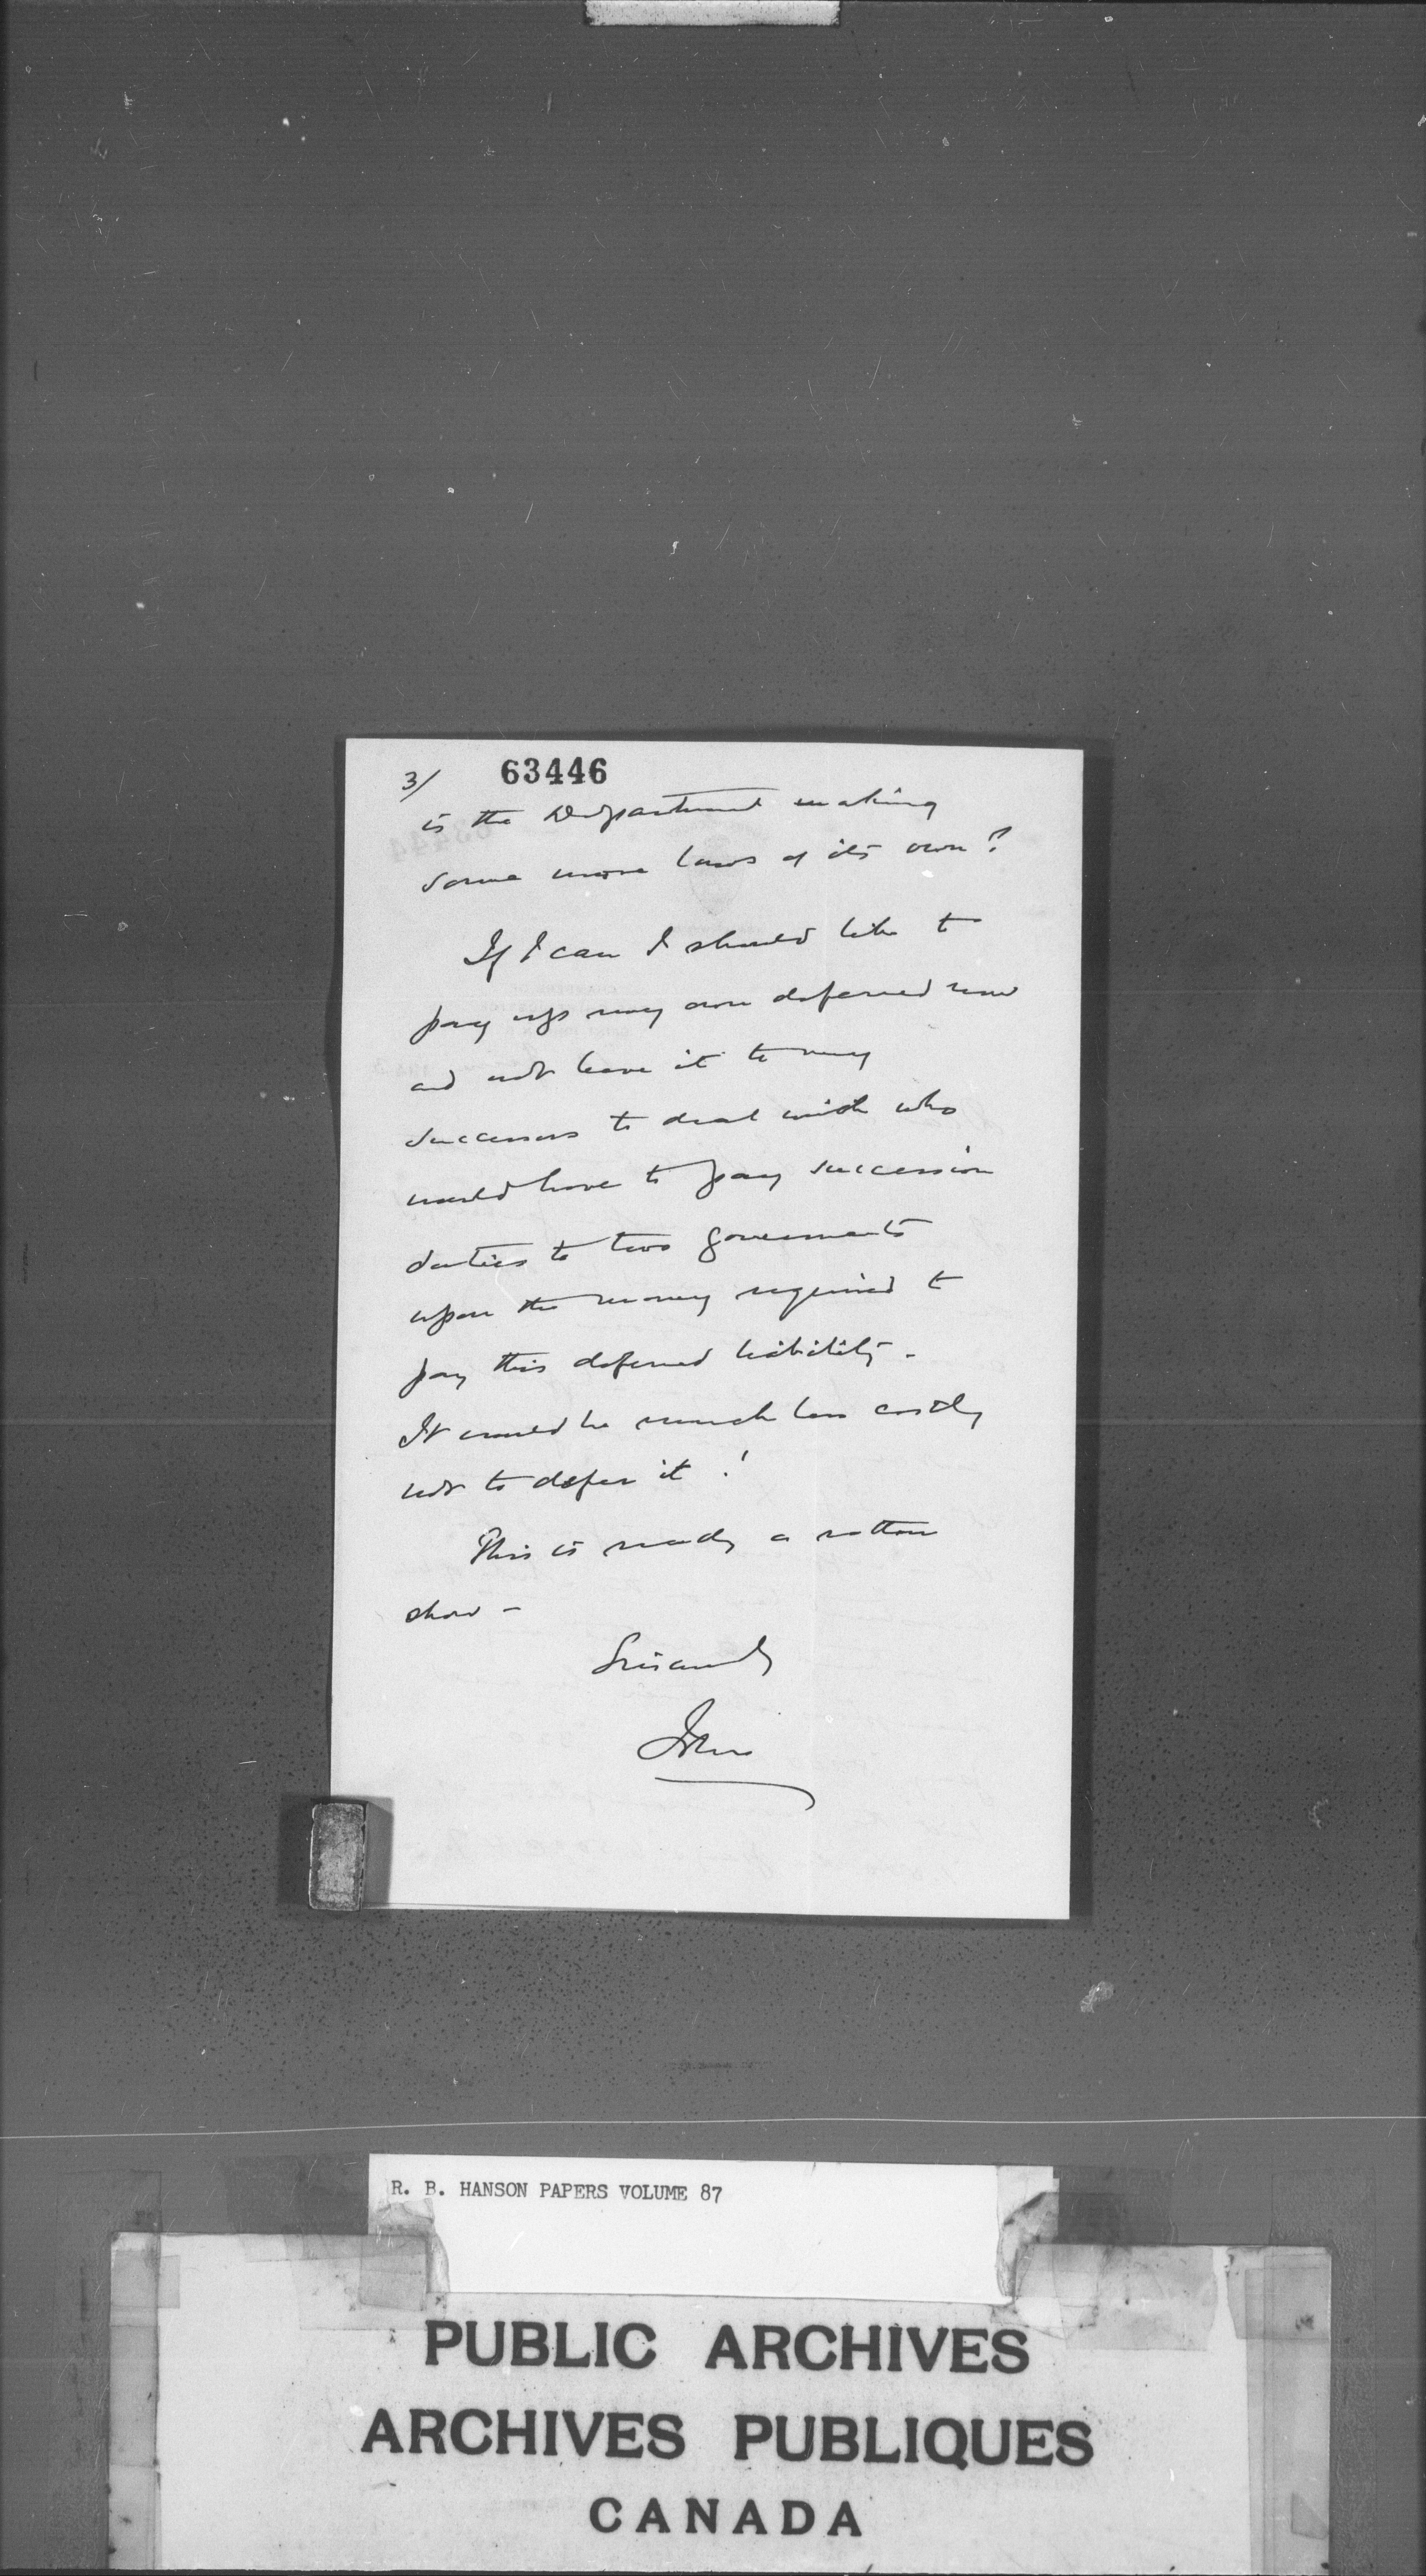 3/ 63446
is the Department making
some more laws of its own?
If I can I should like to
pay up my own deferred now
and not leave it to my
successors to deal with who
would have to pay succession
duties to two governments
upon the money required to
pay this deferred liability -
It would be much less costly
not to defer it !
This is really a rotten
show -
Sincerely
John
R. B. HANSON PAPERS VOLUME 87
PUBLIC ARCHIVES
ARCHIVES PUBLIQUES
CANADA